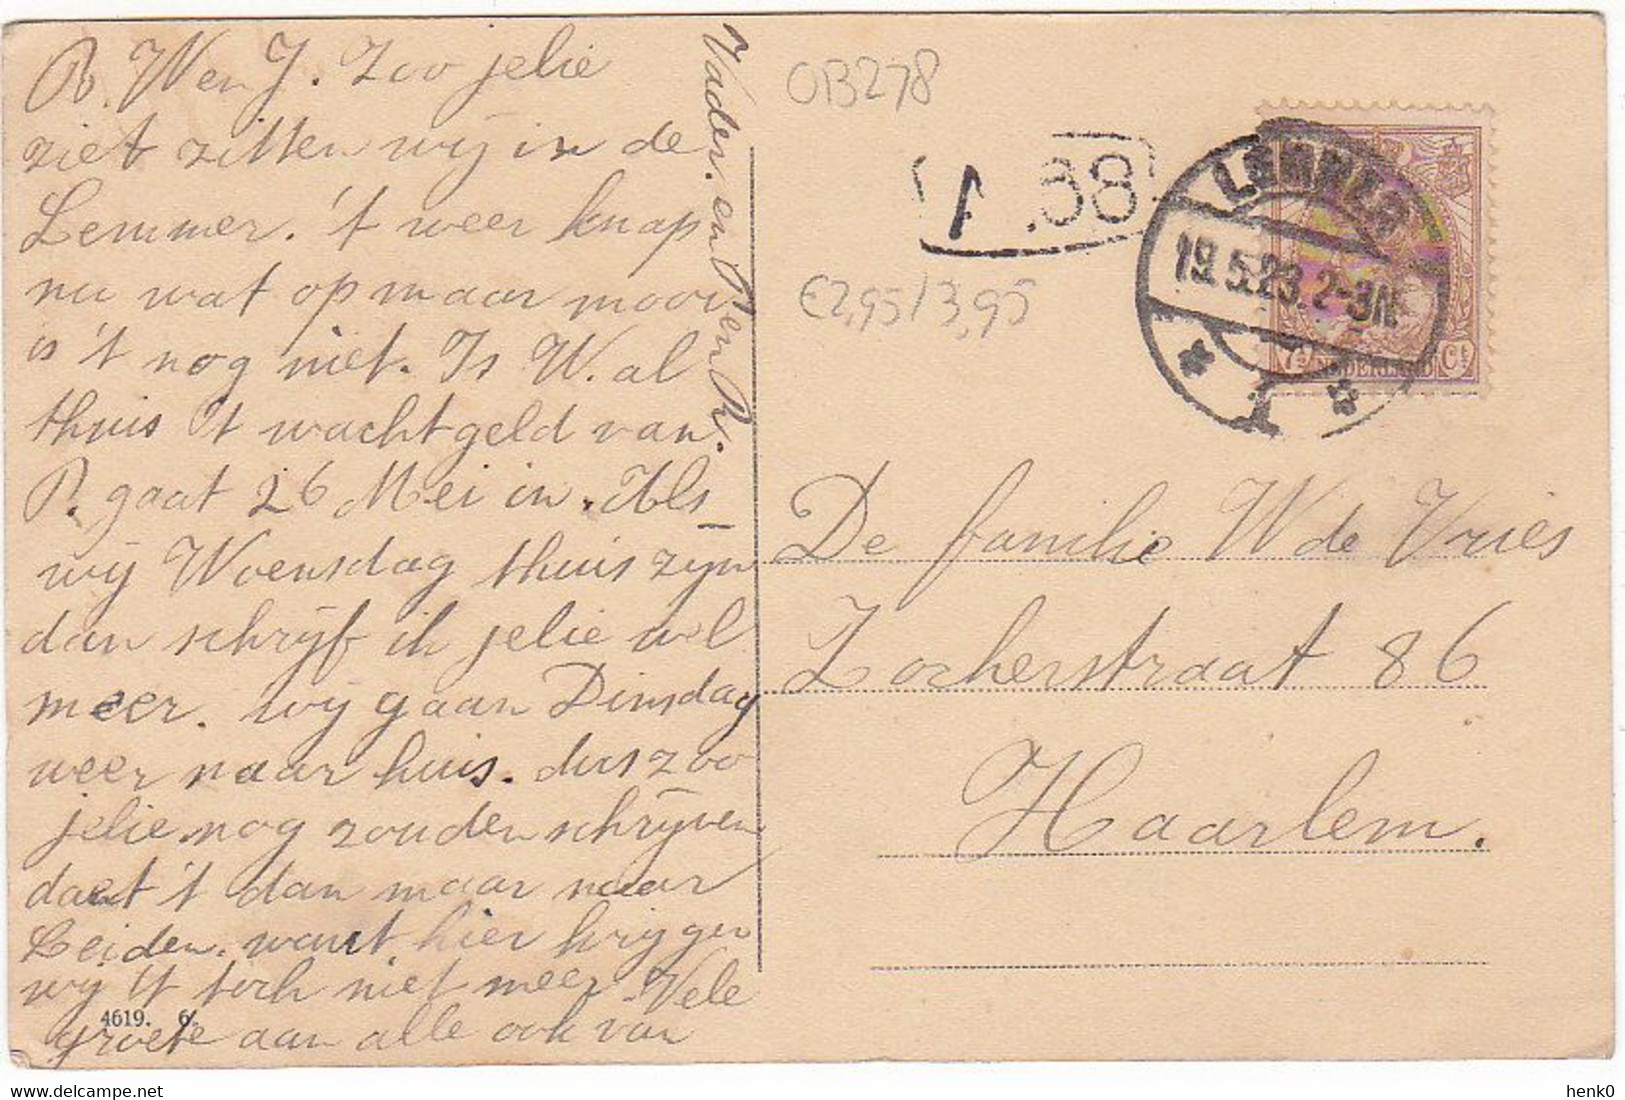 R. W en J. Zoo jelie
ziet zitten wij in de
Lemmer. 't weer knap
nu wat op maar mooi
is 't nog niet. Is W. al
thuis 't wachtgeld van
P. gaat 26 Mei in. Als
wij Woensdag thuis zyn
dan schrijf ik jelie wel
meer. wij gaan Dinsdag
weer naar huis. dus zoo
jelie nog zouden schrijven
doet 't dan maar naar
Leiden. want hier krijgen
wy 't toch niet meer. Vele
groete aan alle ook van
Vader. en P en R.
4619. 6.
OB278
1 .38
€2,95/3,95
LEMMER
19.5.23.2-3N
1
7½ NEDERLAND Ct
De familie W de Vries
Zocherstraat 86
Haarlem.
henk0